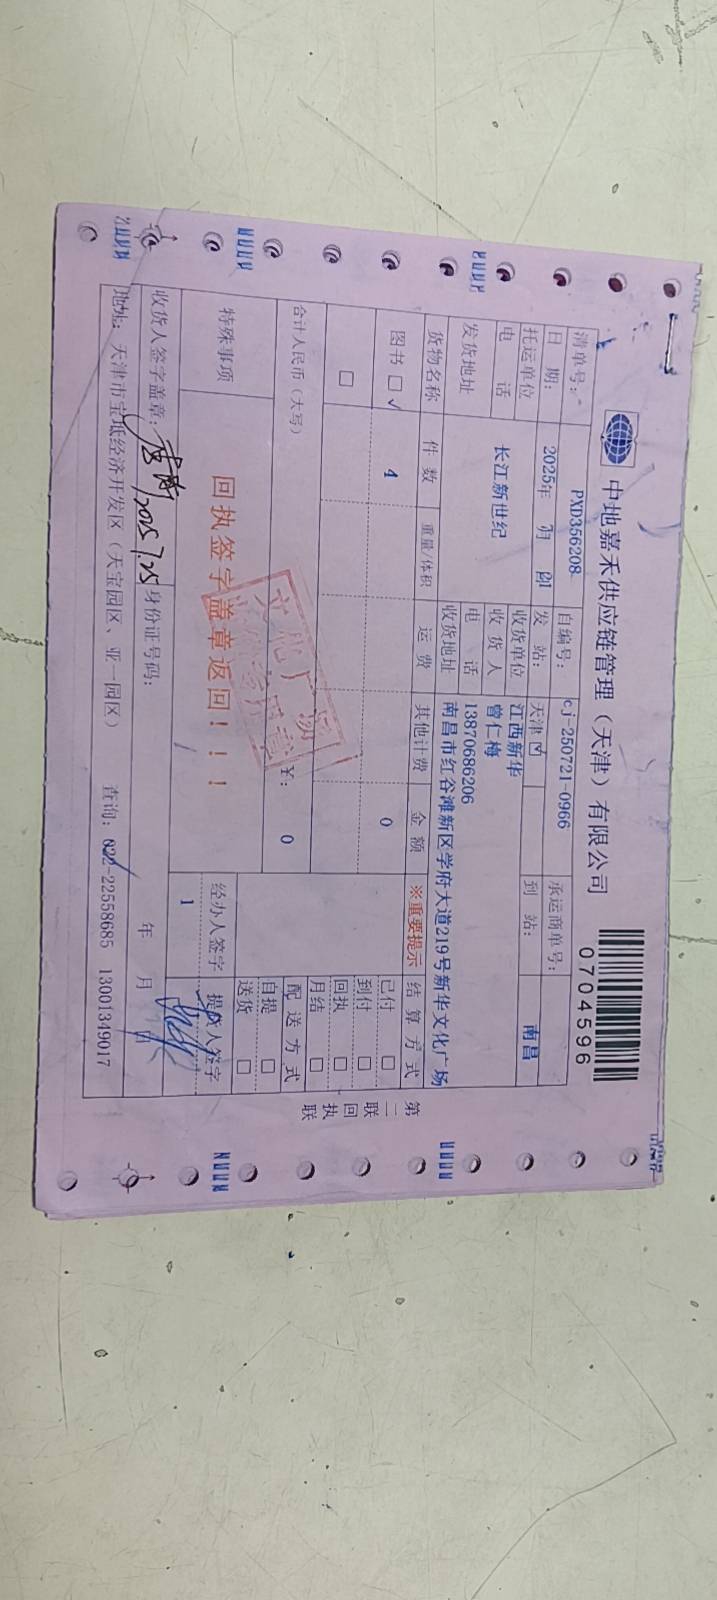 中地嘉禾供应链管理（天津）有限公司
0704596
清单号： PXD356208 自编号： cj-250721-0966 承运商单号：
日 期： 2025年 7月 21 发 站： 天津 到 站： 南昌
托运单位 长江新世纪 收货单位 江西新华
电 话 收 货 人 曾仁梅
发货地址 电 话 13870686206
收货地址 南昌市红谷滩新区学府大道219号新华文化广场
货物名称 件 数 重量/体积 运 费 其他计费 金 额 ※重要提示 结 算 方 式
图书 □ √ 4 0 已付 □
□ 到付 □
回执 □
月结 □
合计人民币（大写） ¥： 0 配 送 方 式
自提 □
送货 □
特殊事项 回执签字盖章返回！！！ 经办人签字 提货人签字
1
文化广场
收货人签字盖章： 2025.7.25 身份证号码： 年 月 日
地址：天津市宝坻经济开发区（天宝园区、亚一园区） 查询：022-22558685 13001349017
第二联 回执联